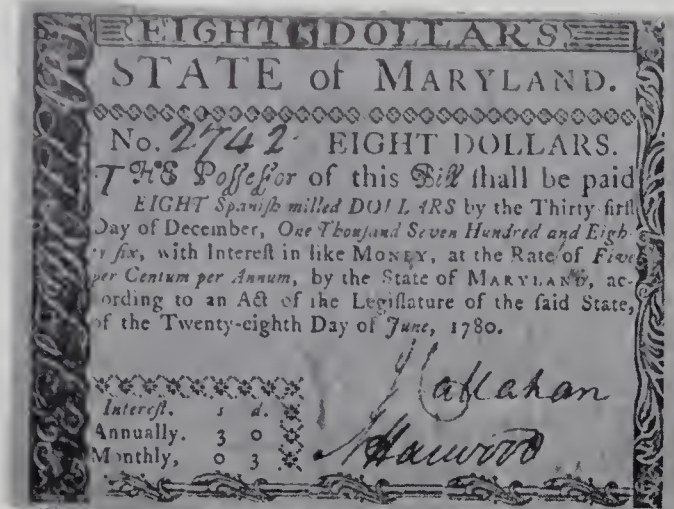 EIGHT DOLLARS
STATE of MARYLAND.
No. 2742 EIGHT DOLLARS.
THE Poſſeſſor of this Bill ſhall be paid
EIGHT Spaniſh milled DOLLARS by the Thirty-firſt
Day of December, One Thouſand Seven Hundred and Eigh-
ty ſix, with Intereſt in like MONEY, at the Rate of Five
per Centum per Annum, by the State of MARYLAND, ac-
cording to an Act of the Legiſlature of the ſaid State,
of the Twenty-eighth Day of June, 1780.
Callahan
Harwood
Intereſt. s d.
Annually. 3 0
Monthly, 0 3